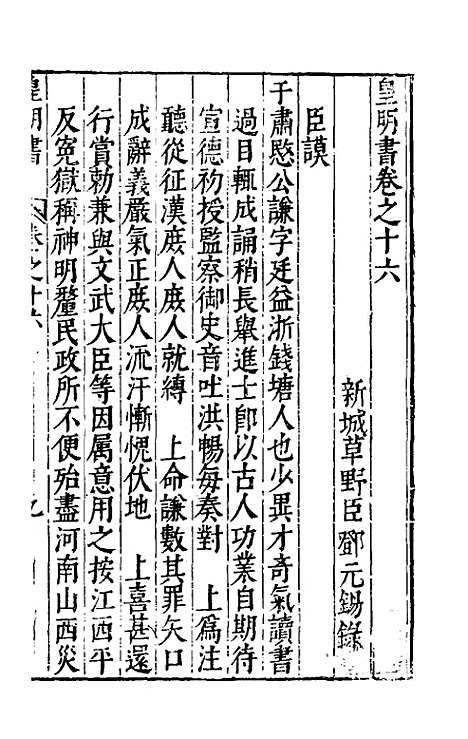 皇明書卷之十六
新城草野臣鄧元錫錄
臣謨
于肅愍公謙字廷益浙錢塘人也少異才奇氣讀書
過目輒成誦稍長舉進士卽以古人功業自期待
宣德初授監察御史音吐洪暢每奏對 上爲注
聽從征漢庻人庻人就縛 上命謙數其罪矢口
成辭義嚴氣正庻人流汗慚愧伏地 上喜甚還
行賞勑兼與文武大臣等因属意用之按江西平
反寃獄稱神明釐民政所不便殆盡河南山西災
皇明書 卷之十六